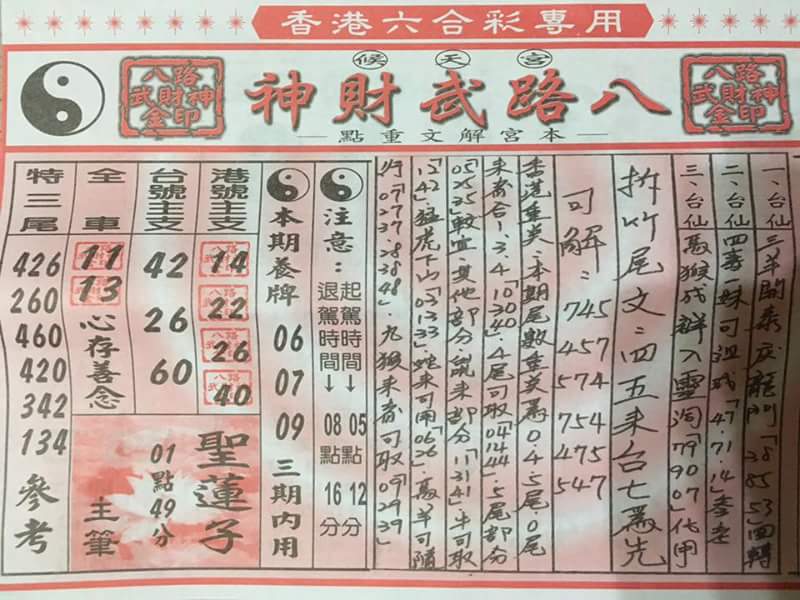 香港六合彩專用
候天宮
八路武財神
八路武財神金印
八路武財神金印
本宮解文重點
一、台仙 三羊開泰慶龍門「38 85 53」四轉
二、台仙 四季妹可
「47 71 14」李老
三、台仙 馬猴成群入靈洞「79 90 07」代甲
拆竹尾文:四五来台七為先
可解:745 457 574 754 475 547
香港重类:本期尾數重类為0 4 5尾0尾
来者合1.3.4「10 30 40」4尾可取「04 14 44」5尾部分
「05 25 35」較宜.其他部分鼠来部分「11 31 41」牛可取
「12 42」猛虎下山「03 13 33」蛇来可用「06 26」馬羊可隨
「07 27 37 28 38 48」九猴来者可取「09 29 39」
注意:
起駕時間→05點12分
退駕時間→08點16分
本期養牌 06 07 09 三期內用
港號主支
14
22
26
40
台號主支
42
26
60
全車
11
13
心存善念
特三尾
426
260
460
420
342
134
參考
聖蓮子
01點49分
主筆